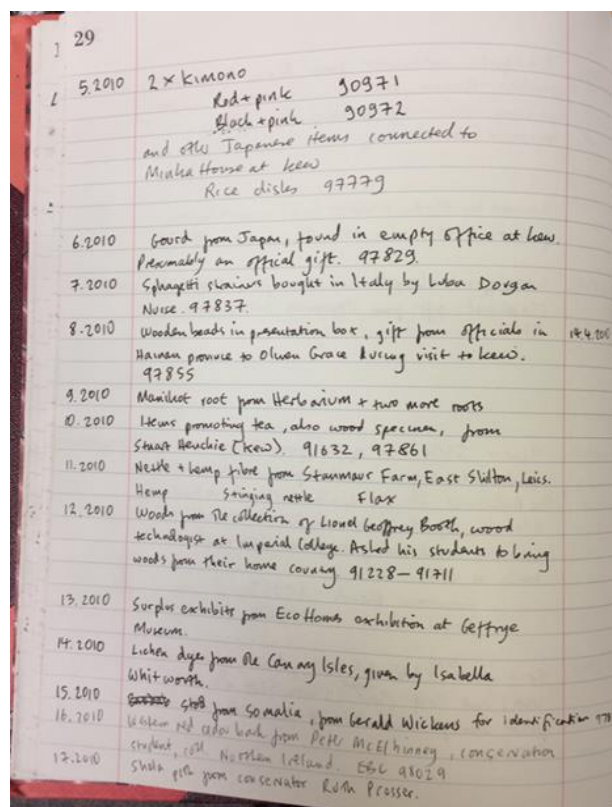 29
5.2010 2 x Kimono
Red + pink 90971
Black + pink 90972
and other Japanese items connected to
Minka House at Kew
Rice dishes 97779
6.2010 Gourd from Japan, found in empty office at Kew.
Presumably an official gift. 97829.
7.2010 Sphagetti strainers bought in Italy by Luba Dorgan
Nurse. 97837.
8.2010 Wooden beads in presentation box, gift from officials in
Hainan province to Olwen Grace during visit to Kew.
97855
9.2010 Manihot root from Herbarium + two more roots
10.2010 Items promoting tea, also wood specimen, from
Stuart Henchie (Kew). 91632, 97861
11.2010 Nettle + hemp fibre from Stanmaur Farm, East Shilton, Leics.
Hemp Stinging nettle Flax
12.2010 Woods from the collection of Lionel Geoffrey Booth, wood
technologist at Imperial College. Asked his students to bring
woods from their home country 91228 – 91711
13.2010 Surplus exhibits from EcoHomes exhibition at Geffrye
Museum.
14.2010 Lichen dyes from the Canary Isles, given by Isabella
Whitworth.
15.2010 from Somalia, from Gerald Wickens for identification
16.2010 Western red cedar bark from Peter McElhinney, conservation
student, coll Northern Ireland. EBC 98029
17.2010 Shola pith from conservator Ruth Prosser.